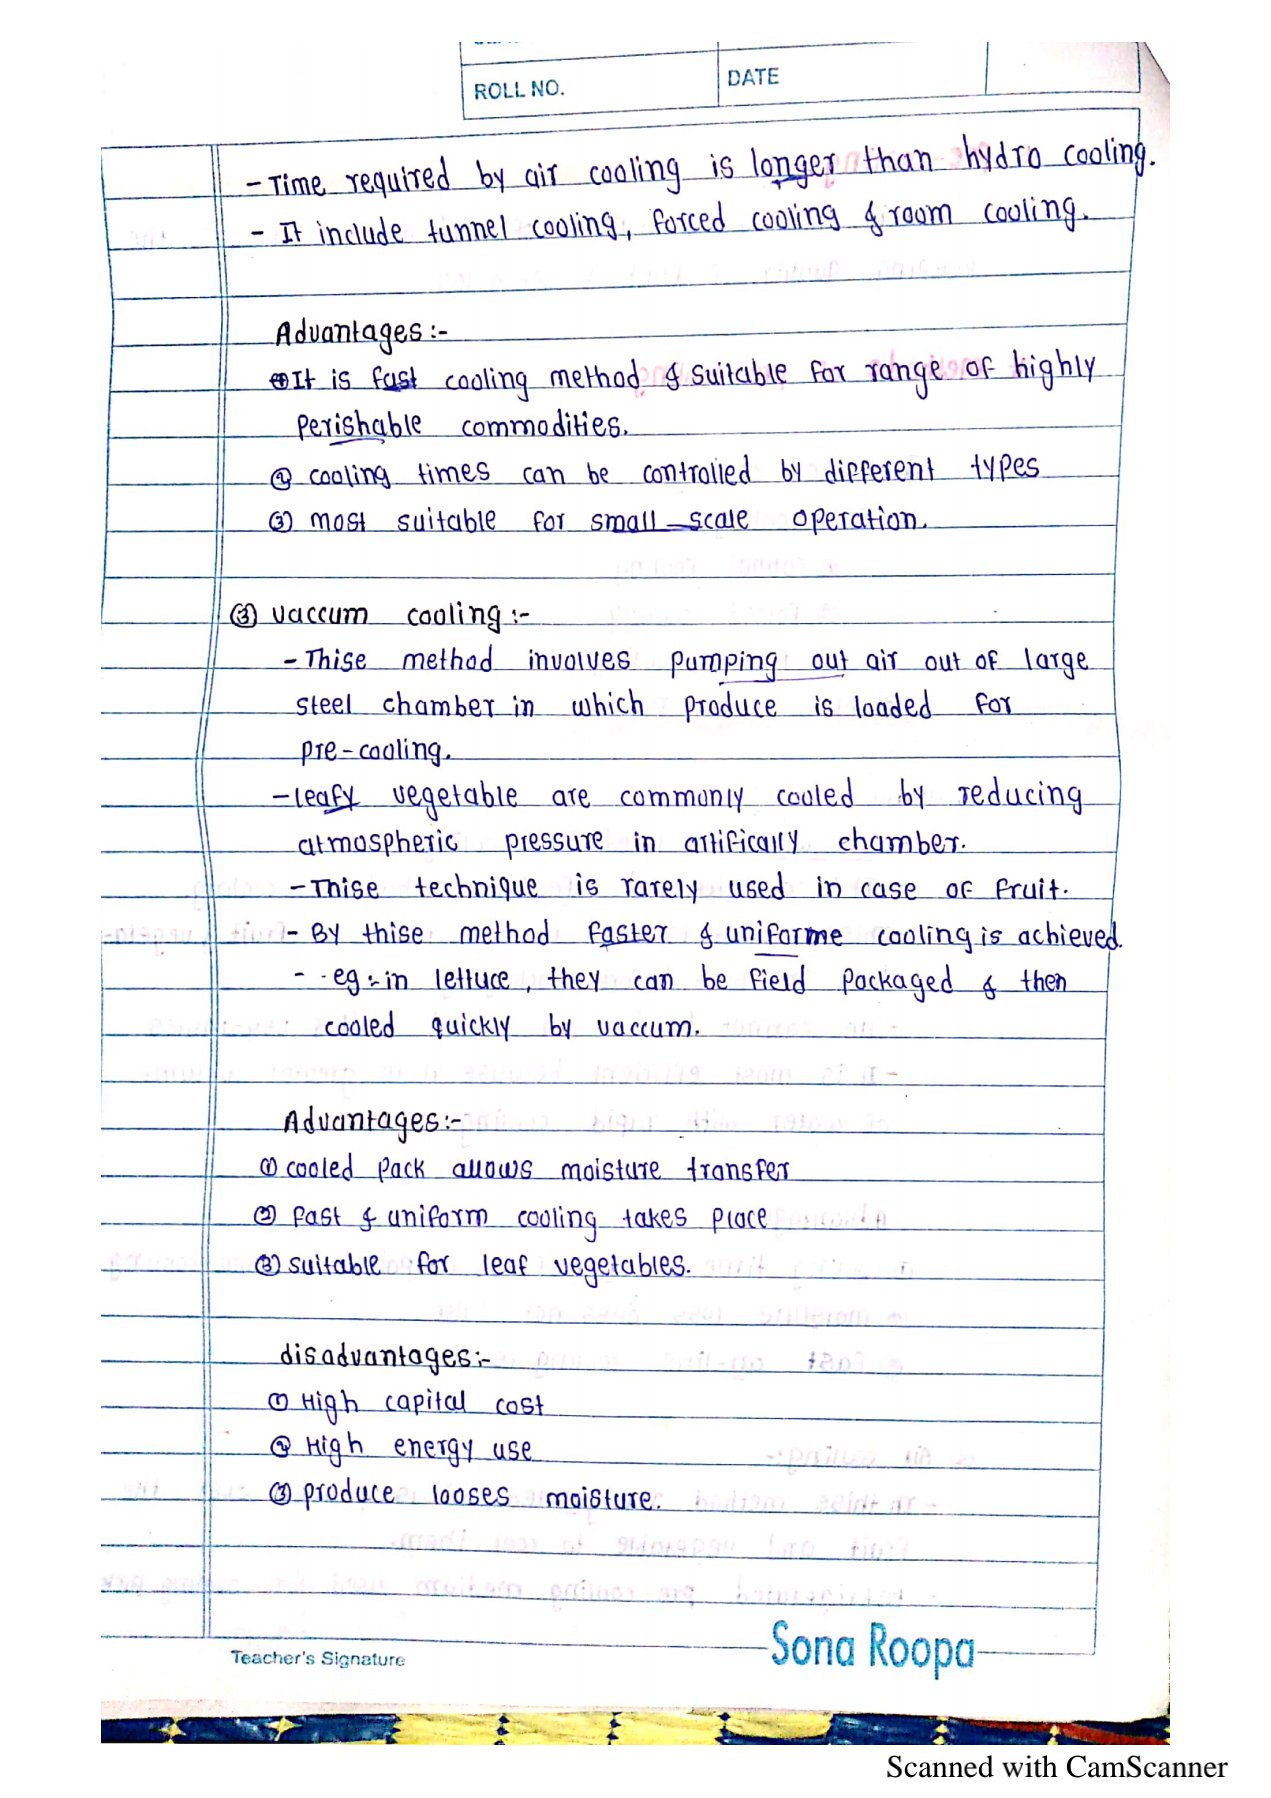 ROLL NO.
DATE
- Time required by air cooling is longer than hydro cooling.
- It include tunnel cooling, forced cooling & room cooling.
Advantages :-
① It is fast cooling method & suitable for range of highly
perishable commodities.
② cooling times can be controlled by different types
③ most suitable for small scale operation.
③ vaccum cooling :-
- Thise method involves pumping out air out of large
steel chamber in which produce is loaded for
pre-cooling.
- leafy vegetable are commonly cooled by reducing
atmospheric pressure in artifically chamber.
- Thise technique is rarely used in case of fruit.
- By thise method faster & uniforme cooling is achieved.
- eg :- in lettuce, they can be field packaged & then
cooled quickly by vaccum.
Advantages :-
① cooled pack allows moisture transfer
② fast & uniform cooling takes place
③ suitable for leaf vegetables.
disadvantages :-
① High capital cost
② High energy use
③ produce looses moisture.
Teacher's Signature
Sona Roopa
Scanned with CamScanner